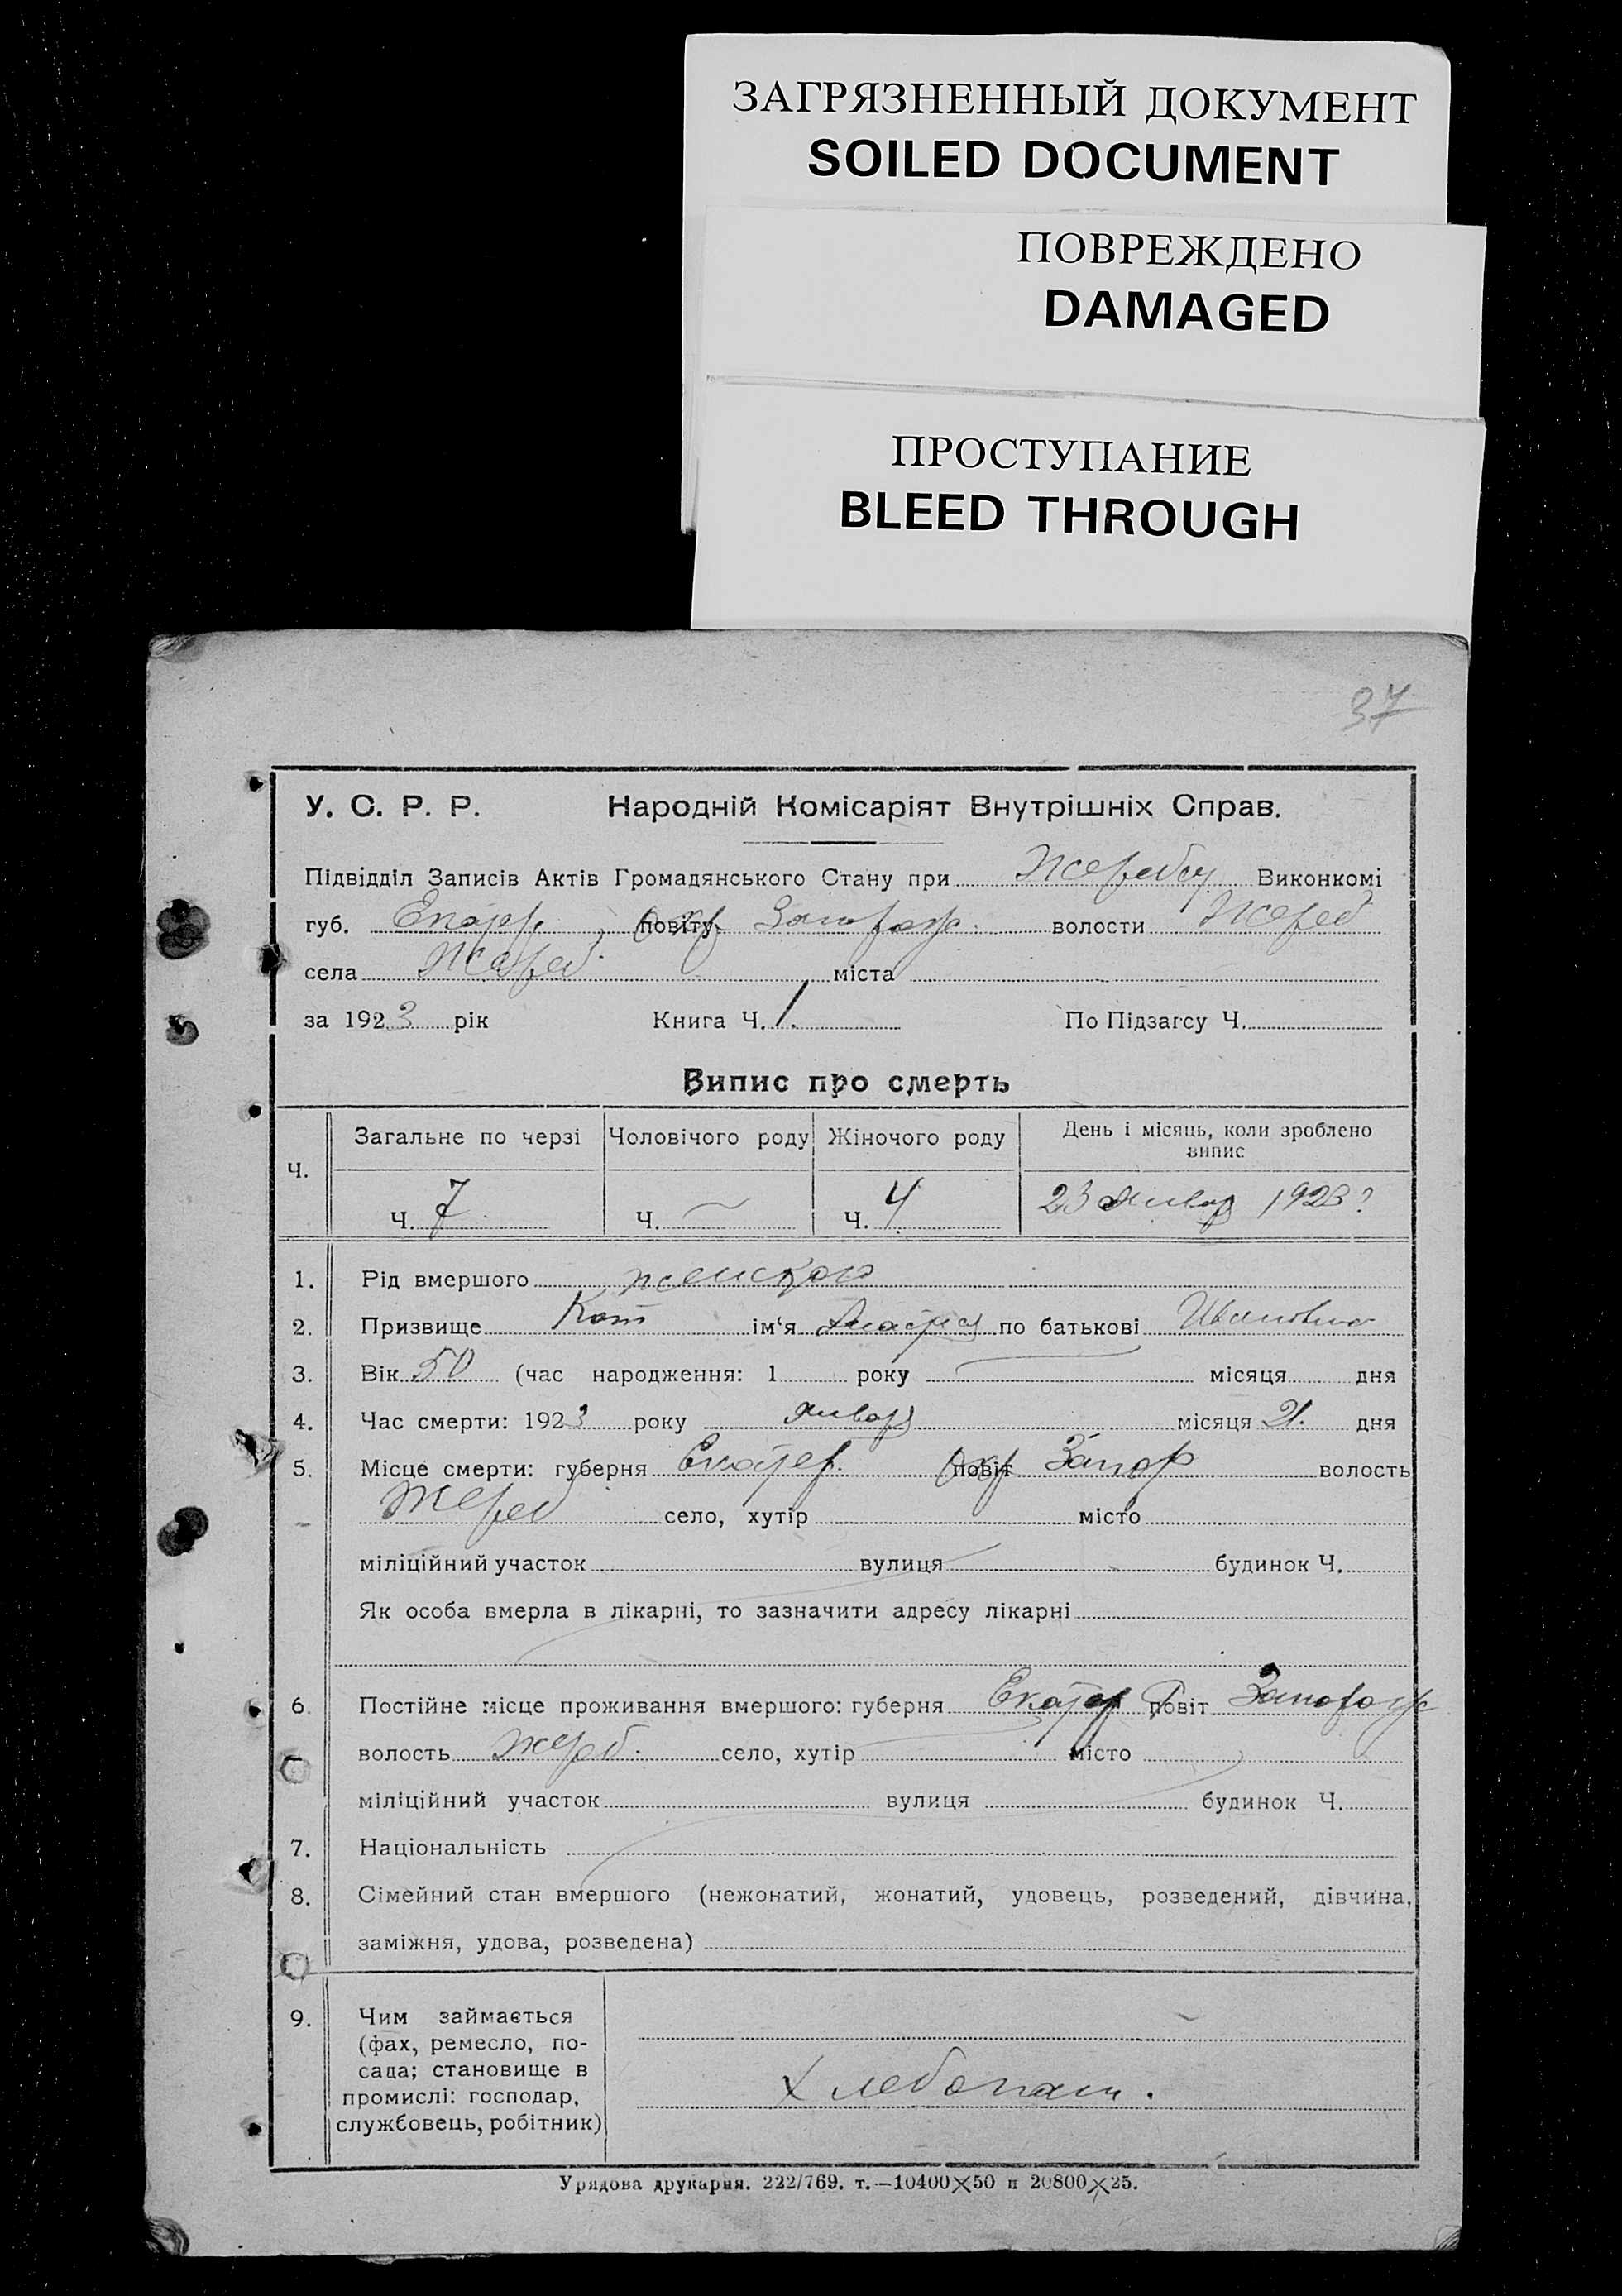 ЗАГРЯЗНЕННЫЙ ДОКУМЕНТ
SOILED DOCUMENT
ПОВРЕЖДЕНО
DAMAGED
ПРОСТУПАНИЕ
BLEED THROUGH
37
У. С. Р. Р. Народній Комісаріят Внутрішніх Справ.
Підвідділ Записів Актів Громадянського Стану при Виконкомі
губ. повіту волости Жереб
села Жереб міста
за 1923 рік Книга Ч. 1. По Підзагсу Ч.
Випис про смерть
Ч. Загальне по черзі Чоловічого роду Жіночого роду День і місяць, коли зроблено випис
Ч. 7 Ч. — Ч. 4 23 январ 1923
1. Рід вмершого женского
2. Призвище Кот ім‘я по батькові Ивановна
3. Вік 50 (час народження: 1 року місяця дня
4. Час смерти: 1923 року январ місяця 21. дня
5. Місце смерти: губерня Екатер. повіт Окр Запор волость
Жереб село, хутір місто
міліційний участок вулиця будинок Ч.
Як особа вмерла в лікарні, то зазначити адресу лікарні
6. Постійне місце проживання вмершого: губерня Екатер повіт Запорож
волость Жереб. село, хутір місто
міліційний участок вулиця будинок Ч.
7. Національність
8. Сімейний стан вмершого (нежонатий, жонатий, удовець, розведений, дівчина,
заміжня, удова, розведена)
9. Чим займається
(фах, ремесло, по-
сада; становище в
промислі: господар,
службовець, робітник)
Хлебопаш.
Урядова друкарня. 222/769. т.—10400×50 п 20800×25.